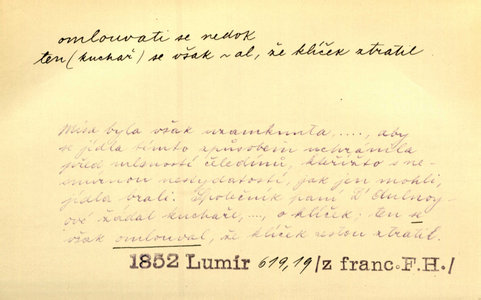 omlouvati se nedok
ten (kuchař) se však ~al, že klíček ztratil
Mísa byla však uzamknuta, ...., aby
se jídla tímto způsobem uchránila
před mlsností čeledínů, kteřížto s ne-
smírnou nesvědomitostí, jak jen mohli,
jídla brali. Společník paní D'Aulnoy-
ové žádal kuchaře, ..., o klíček; ten se
však omlouval, že klíček cestou ztratil.
1852 Lumír 619,19 /z franc. F.H./